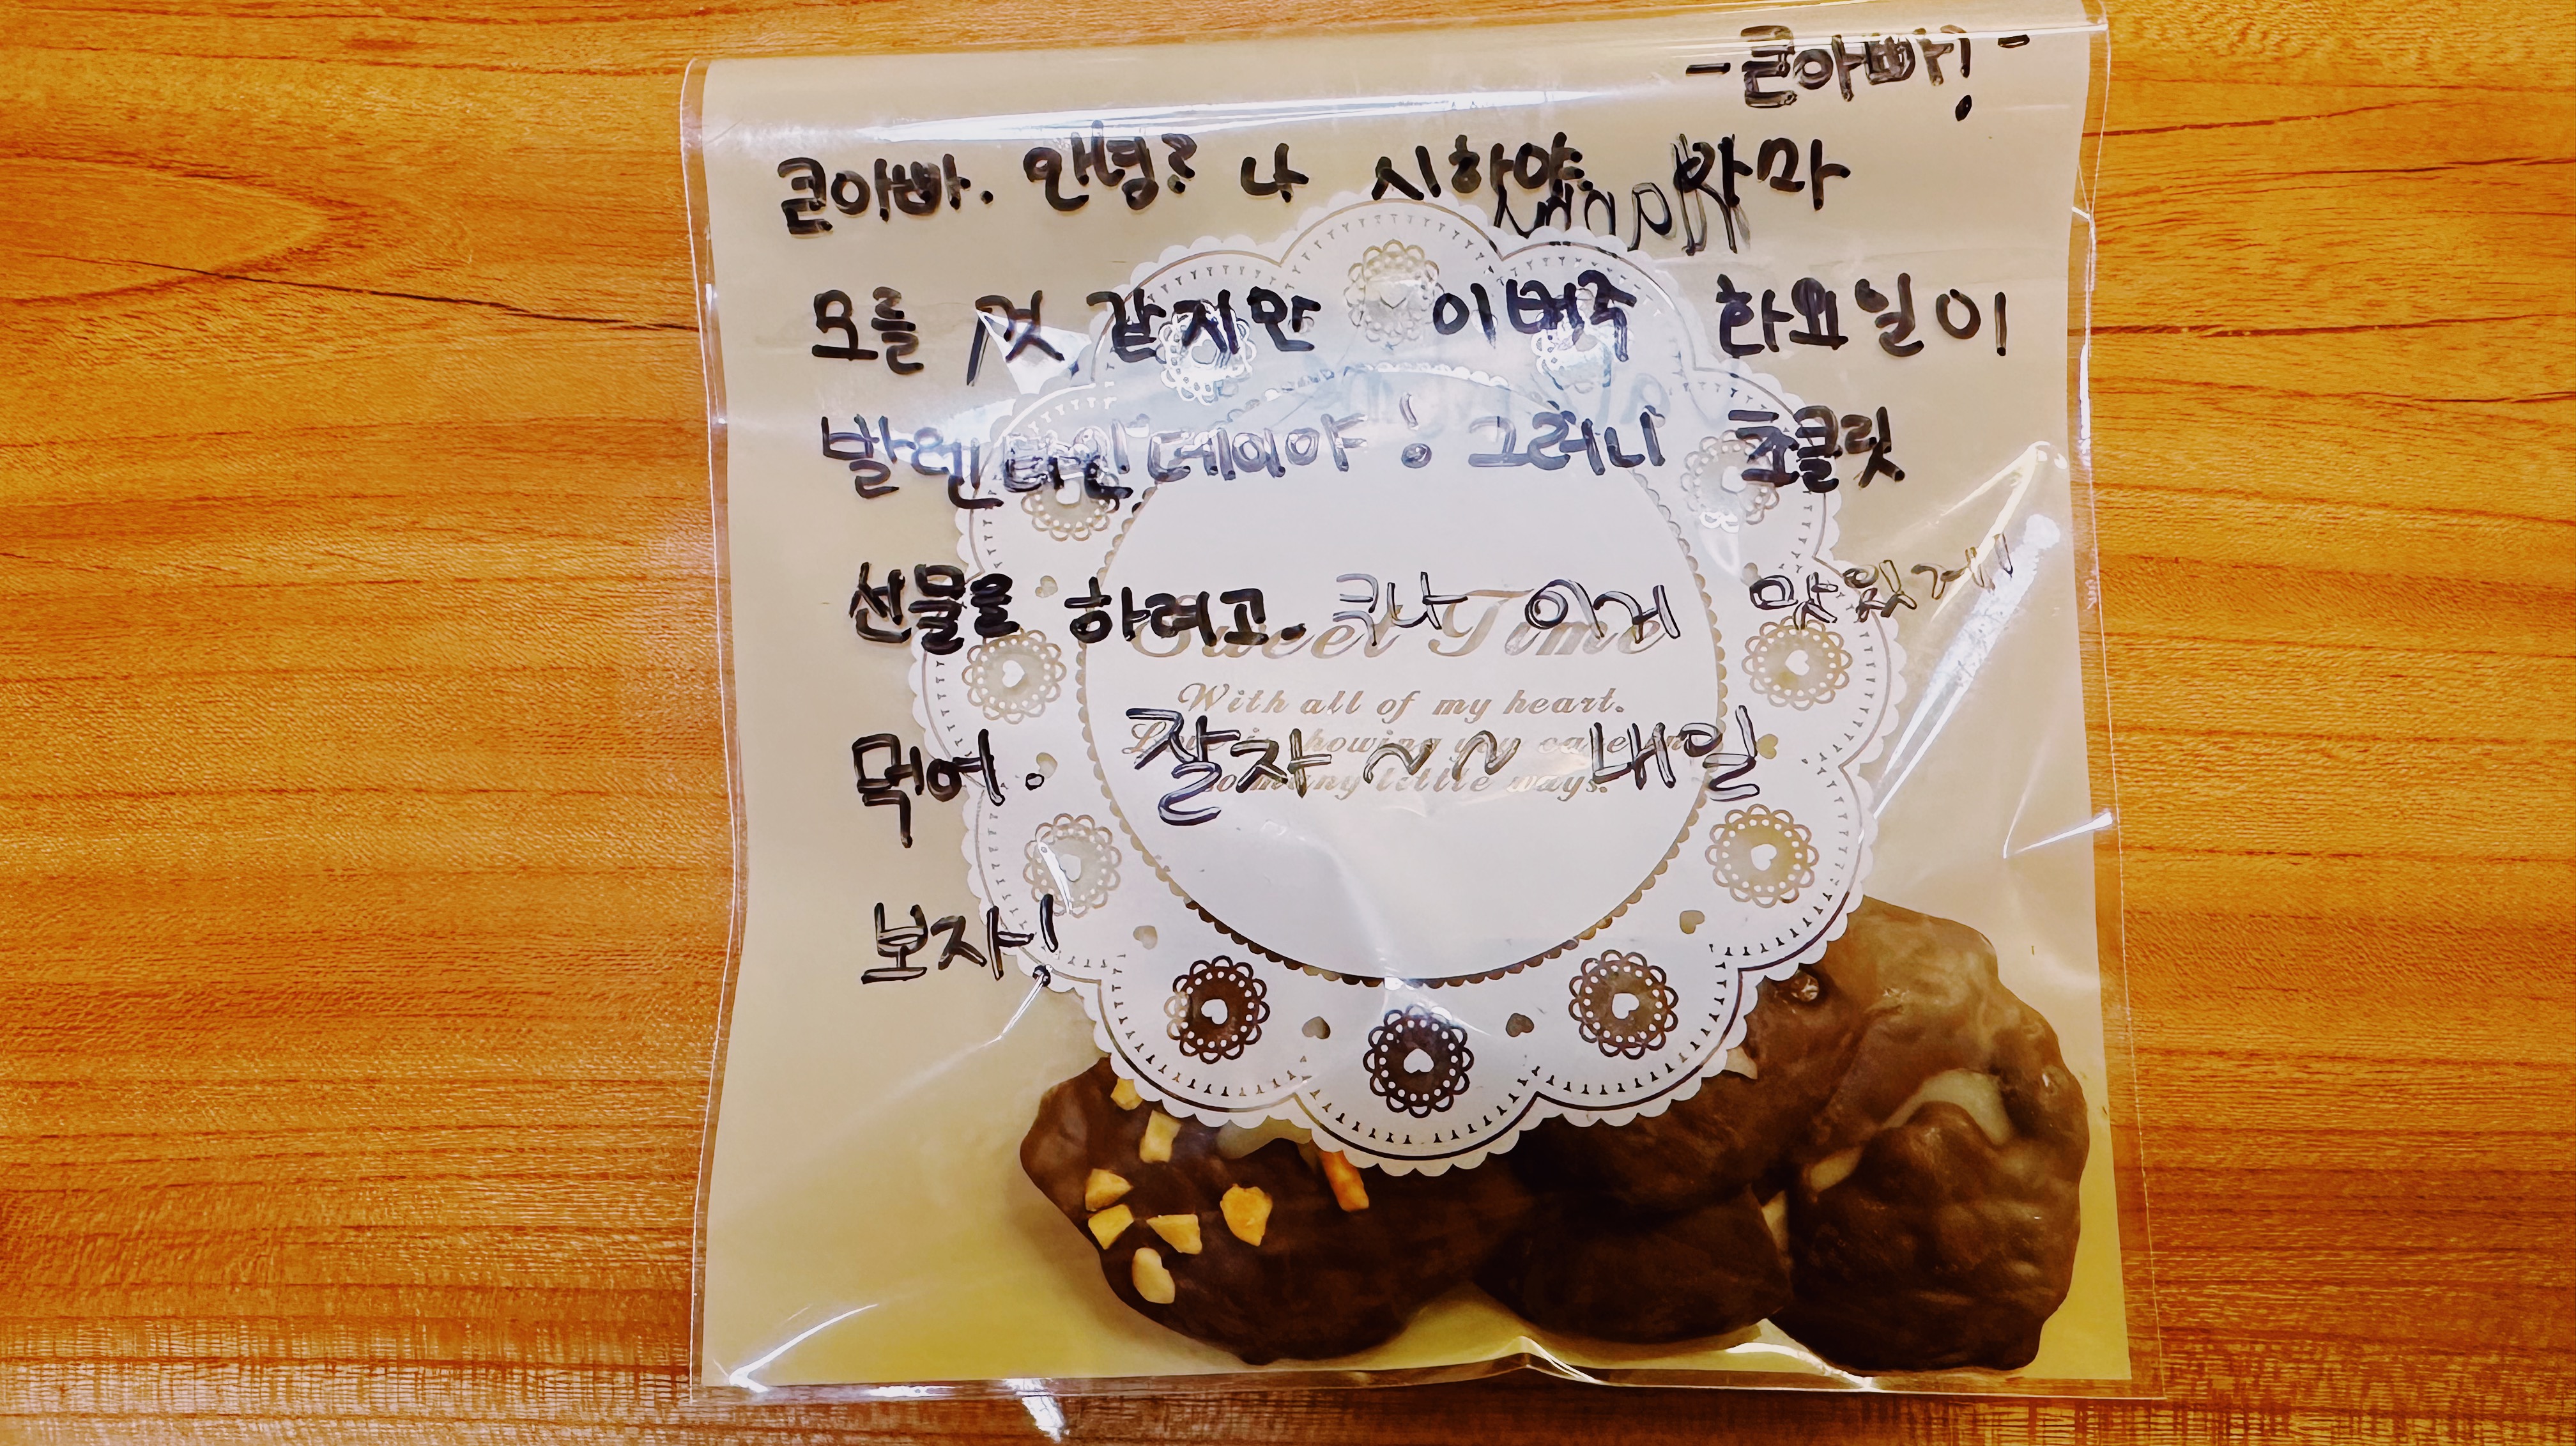 -큰아빠!-
큰아빠. 안녕? 나 시하야. 아마
모를 것 같지만 이번주 화요일이
발렌타인데이야! 그러니 초콜릿
선물을 하려고. 이거 맛있게
Sweet Time
With all of my heart.
Love is showing you care in
so many little ways.
먹어. 잘자~~ 내일
보자!